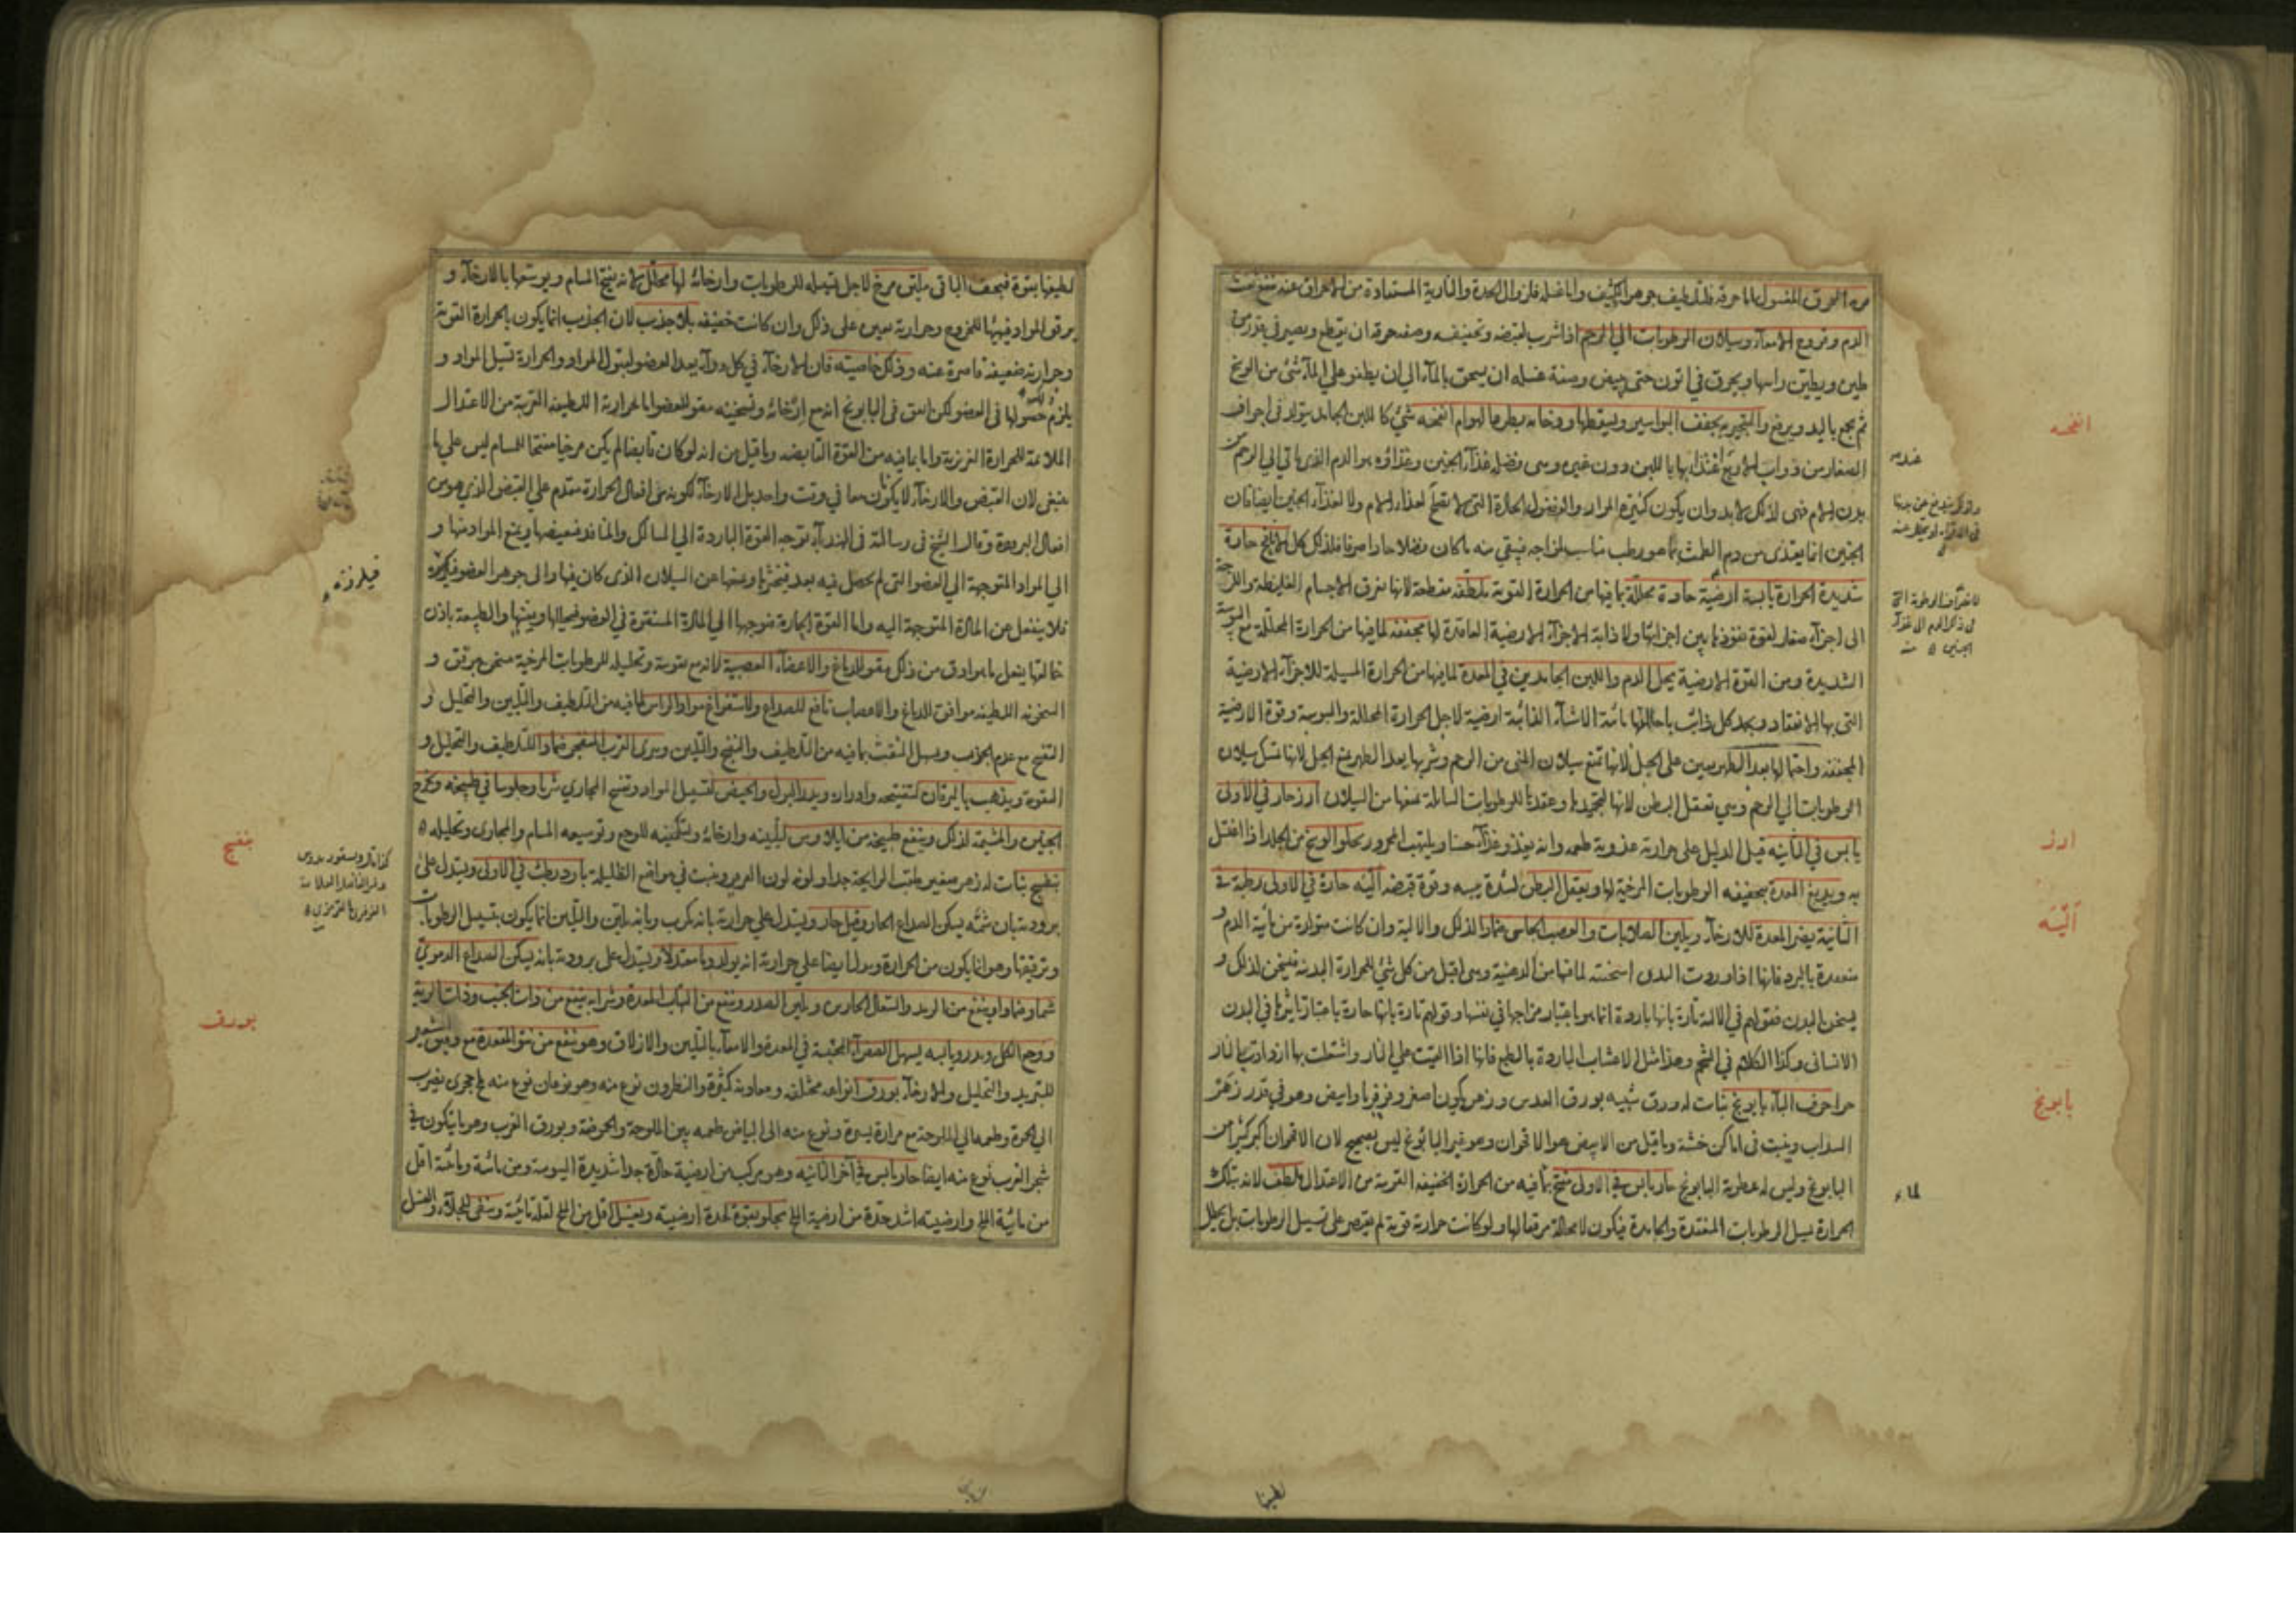 الدم وقروح الامعاء وسيلان الرطوبات الى الرحم اذا شرب لقبضه وتجفيفه وصفة حرقه ان يقطع ويصير في قدر من
طين ويطين راسها ويحرق في اتون حتى يبيض وصفة غسله ان يسحق بالماء الى ان يطفو على الماء شئ من الوسخ
ثم يجمع باليد ويرفع والتبخير به يجفف البواسير ويسقطها ودخانه يطرد الهوام انفحه شئ كاللبن الجامد يتولد في اجواف
بدن الام فهى لذلك لابد وان يكون كثيرة المواد والفضول الحادة التى لا تصلح لغذاء الام ولا لغذاء الجنين ايضا فان
الجنين انما يغتذى من دم الطمث بما هو رطب مناسب لمزاجه فيبقى منه ما كان فضلا حادا صرفا فلذلك كل الانافح حادة
شديدة الحرارة يابسة ارضية حادة محللة بما فيها من الحرارة القوية ملطفة مقطعة لانها تفرق الاجسام الغليظة واللزجة
الى اجزاء صغار لقوة نفوذها بين اجزائها ولاذابة الاجزاء الارضية العاقدة لها مجففة لما فيها من الحرارة المحللة مع اليبوسة
الشديدة ومن القوة الارضية يحل الدم واللبن الجامدين في المعدة لما فيها من الحرارة المسيلة للاجزاء الارضية
التى بها الانعقاد ويجمد كل ذائب باحالتها مائية الاشياء الذائبة ارضية لاجل الحرارة المحللة واليبوسة وقوة الارضية
المجففة واحتمالها بعد الطهر يعين على الحبل لانها تمنع سيلان المنى من الرحم وشربها بعد الطهر يمنع الحبل لانها تسيل سيلان
الرطوبات الى الرحم وهى تعقل البطن لانها تجمدها وعقدها للرطوبات السائلة تمنعها من السيلان ارز حار في الاولى
يابس في الثانية قيل الدليل على حرارته عذوبة طعمه وانه يغذو غذاء حسنا ويلهب المحرور يجلو الوسخ من الجلد اذا اغتسل
به ويدبغ المعدة بتجفيفه الرطوبات المرخية لها ويعقل البطن لشدة يبسه وقوة قبضه الية حارة في الاولى رطبة في
الثانية يضر المعدة للارخاء ويلين الصلابات والعصب الجاسى ضمادا لذلك والالية وان كانت متولدة من مائية الدم و
منعقدة بالبرد فانها اذا وردت البدن اسخنته لما فيها من الدهنية وهى اقبل من كل شئ للحرارة البدنية فيسخن لذلك و
يسخن البدن فقولهم في الالية تارة بانها باردة انما هو باعتبار مزاجها في نفسها وقولهم تارة بانها حارة باعتبار تاثيرها في البدن
الانسانى وكذا الكلام في الشحم وهذا مثل الاعشاب الباردة بالطبع فانها اذا القيت على النار واشتعلت بها ازدادت بها النار
حرا حرف الباء بابونج نبات له ورق شبيه بورق العدس وزهر يكون اصفر وفرفيريا وابيض وهو في قدر زهر
السذاب وينبت في اماكن خشنة وما قيل من الابيض هو الاقحوان وهو غير البابونج ليس بصحيح لان الاقحوان اكبر كثيرا من
البابونج وليس له عطرية البابونج حار يابس في الاولى مفتح بما فيه من الحرارة الخفيفة القريبة من الاعتدال ملطف لانه بتلك
الحرارة يسيل الرطوبات المنعقدة والجامدة فيكون لا محالة مرققا لها ولو كانت حرارته قوية لم يقتصر على تسييل الرطوبات بل يحلل
انفحه
ارز
الية
بابونج
لطيفها بقوة فيجف الباقى ملين مرخ لاجل تسييله للرطوبات وارخائه لها محلل لانه يفتح المسام ويوسعها بالارخاء و
يرقق المواد فيهيئها للخروج وحرارته تعين على ذلك وان كانت خفيفة بلا جذب لان الجذب انما يكون بالحرارة القوية
وحرارته ضعيفة قاصرة عنه وذلك خاصيته فان الارخاء في كل دواء يعد العضو لقبول المواد والحرارة تسيل المواد و
يلزم حصولها في العضو لكن اتفق في البابونج انه مع ارخائه وتسخينه مقو للعضو اما بحرارته اللطيفة القريبة من الاعتدال
الملائمة للحرارة الغريزية واما بما فيه من القوة القابضة وما قيل من انه لو كان قابضا لم يكن مرخيا مفتحا للمسام ليس على ما
ينبغى لان القبض والارخاء لا يكونان معا في وقت واحد بل الارخاء لكونه من افعال الحرارة متقدم على القبض الذى هو من
افعال البرودة وقال الشيخ في رسالته في الهندباء توجه القوة الباردة الى المسالك والمنافذ فيضيقها ويمنع المواد منها و
فلا ينفعل عن المادة المتوجهة اليه واما القوة الحارة فتوجهها الى المادة المستقرة في العضو فيحيلها ويفنيها والطبيعة باذن
خالقها يفعل ما هو اوفق من ذلك مقو للدماغ والاعضاء العصبية لانه مع تقويته وتحليله للرطوبات المرخية مسخن مرقق و
السخونة اللطيفة موافق للدماغ والاعصاب نافع للصداع ولاستفراغ مواد الراس لما فيه من التلطيف والتليين والتحليل و
التفتيح مع عدم الجذب ويسهل النفث بما فيه من التلطيف والنضج والتليين ويبرئ الغرب المنفجر ضمادا للتلطيف والتحليل و
التقوية ويذهب باليرقان لتفتيحه وادراره ويدر البول والحيض لتسييل المواد وتفتيح المجارى شربا وجلوسا في طبيخه ويخرج
الجنين والمشيمة لذلك وينفع طبيخه من ايلاوس لتليينه وارخائه وتسكينه للوجع وتوسيعه المسام والمجارى وتحليله
بنفسج نبات له زهر صغير طيب الرائحة جدا ولونه لون الفرفير وينبت في مواضع الظليلة بارد رطب في الاولى ويستدل على
برودته بان شمه يسكن الصداع الحار وقيل حار ويستدل على حرارته بانه مكرب وبانه ملين والتليين انما يكون بتسييل الرطوبات
وترقيقها وهو انما يكون من الحرارة ويدل ايضا على حرارته انه يولد دما معتدلا ويستدل على برودته بانه يسكن الصداع الدموى
شما وضمادا وينفع من الرمد والسعال الحادين ويلين الصدر وينفع من التهاب المعدة وشرابه ينفع من ذات الجنب وذات الرية
ووجع الكلى ويدر ويابسه يسهل الصفراء المحتبسة في المعدة والامعاء بالتليين والازلاق وهو ينفع من نتو المقعدة مع دقيق الشعير
للتبريد والتحليل والارخاء بورق انواعه مختلفة ومعادنه كثيرة والنطرون نوع منه وهو نوعان نوع منه حجرى يضرب
الى الحمرة وطعمه الى الملوحة مع مرارة يسيرة ونوع منه الى البياض طعمه بين الملوحة والحموضة وبورق الغرب وهو ما يتكون في
شجر الغرب نوع منه ايضا حار يابس في آخر الثانية وهو مركب من ارضية حادة جدا شديدة اليبوسة ومن مائية ومائيته اقل
من مائية الملح وارضيته اشد حدة من ارضية الملح يجلو بقوة لحدة ارضيته ويغسل اقل من الملح لقلة مائيته وينقى للجلاء والغسل
بنفسج
بورق
لطيفها